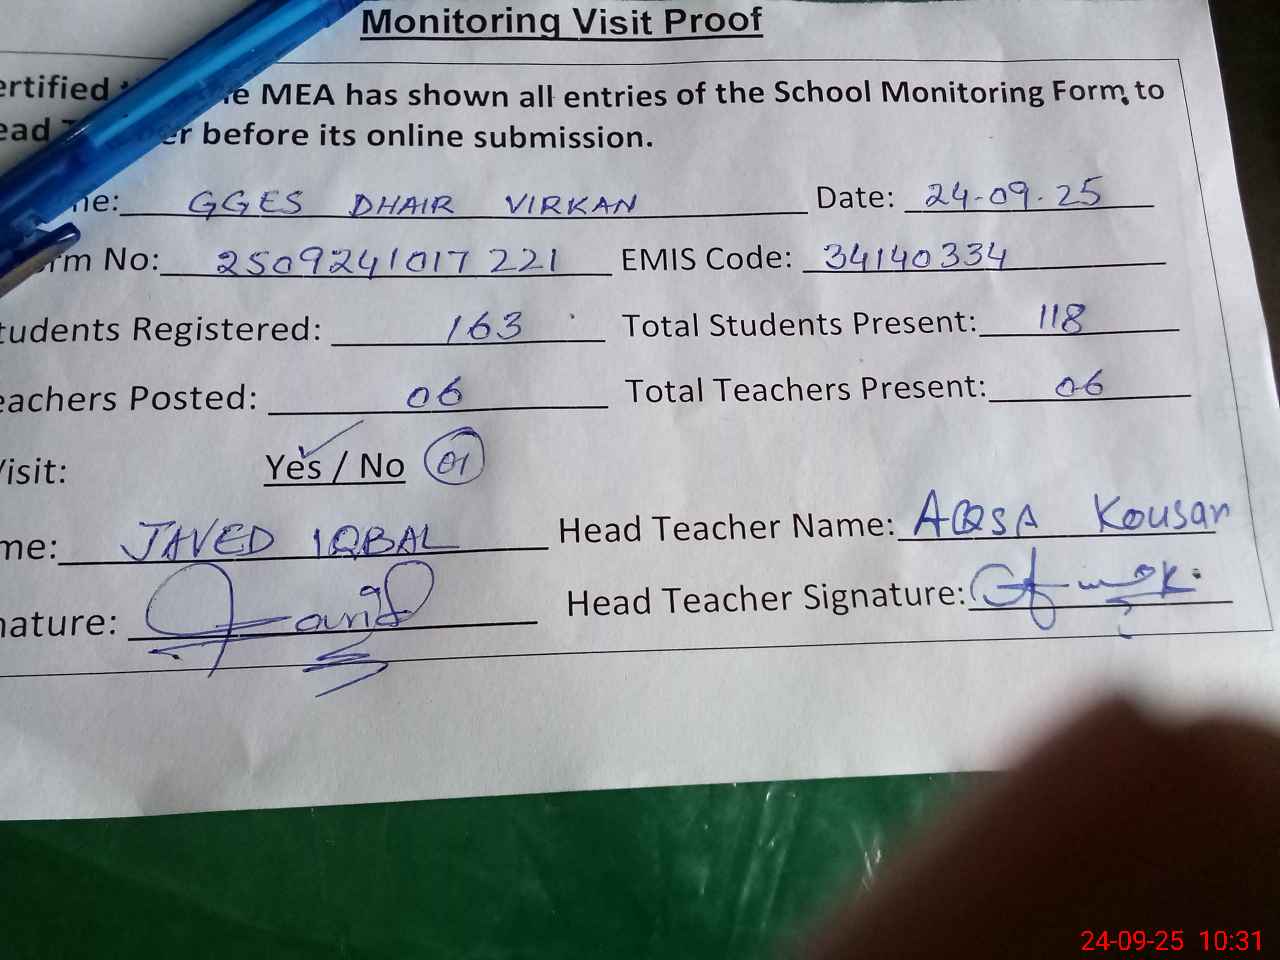 Monitoring Visit Proof
ertified MEA has shown all entries of the School Monitoring Form to
ead er before its online submission.
ne: GGES DHAIR VIRKAN Date: 24-09-25
rm No: 2509241017221 EMIS Code: 34140334
tudents Registered: 163 Total Students Present: 118
eachers Posted: 06 Total Teachers Present: 06
Visit: Yes / No 01
me: JAVED IQBAL Head Teacher Name: AQSA Kousar
nature: Javid Head Teacher Signature:
24-09-25 10:31